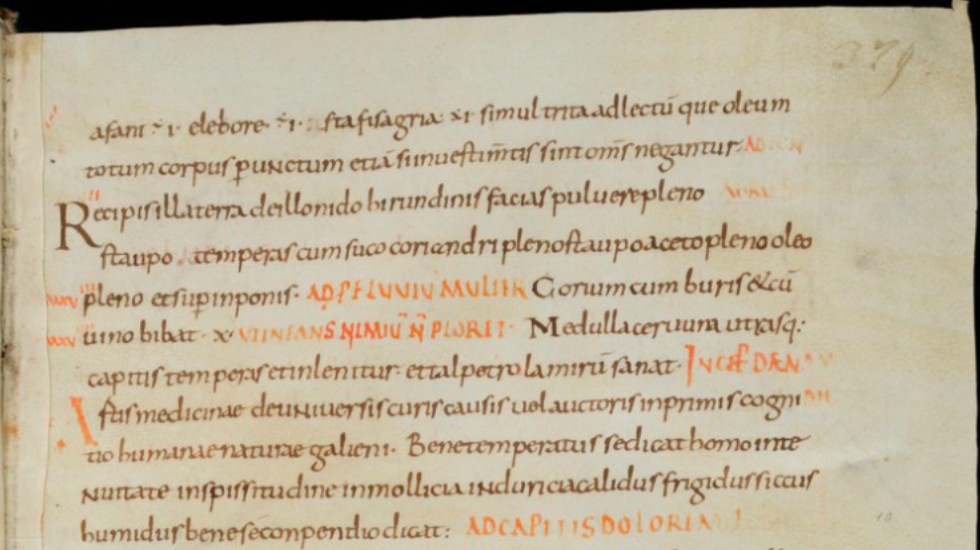 379
asani ÷ı· elebore ÷ı· stafisagria ÷ı simul trita ad lectū que oleum
totum corpus punctum etiā sunuestimtis sint oms negantur· AD
Recipis illa terra de illo nido hirundinis facias puluere pleno
staupo temperas cum suco coriandri pleno staupo aceto pleno oleo
pleno et sup inponis· AD PFLUVIU MULIER Corum cum buris &cū
uino bibat· x· UTINFANS NIMIŪ N̄ PLORET· Medulla ceruuna utrasq:
capitis temperas et inlenitur et talpetrola mirū sanat· INC
Istis medicinae de uniuersis curis causis uel auctoris inprimis cogni
tio humanae naturae galieni· Bene temperatus se dicat homo inte
nuitate inspissitudine inmollicia induricia calidus frigidus siccus
humidus bene se conpendio dicat: AD CAPITIS DOLOREM